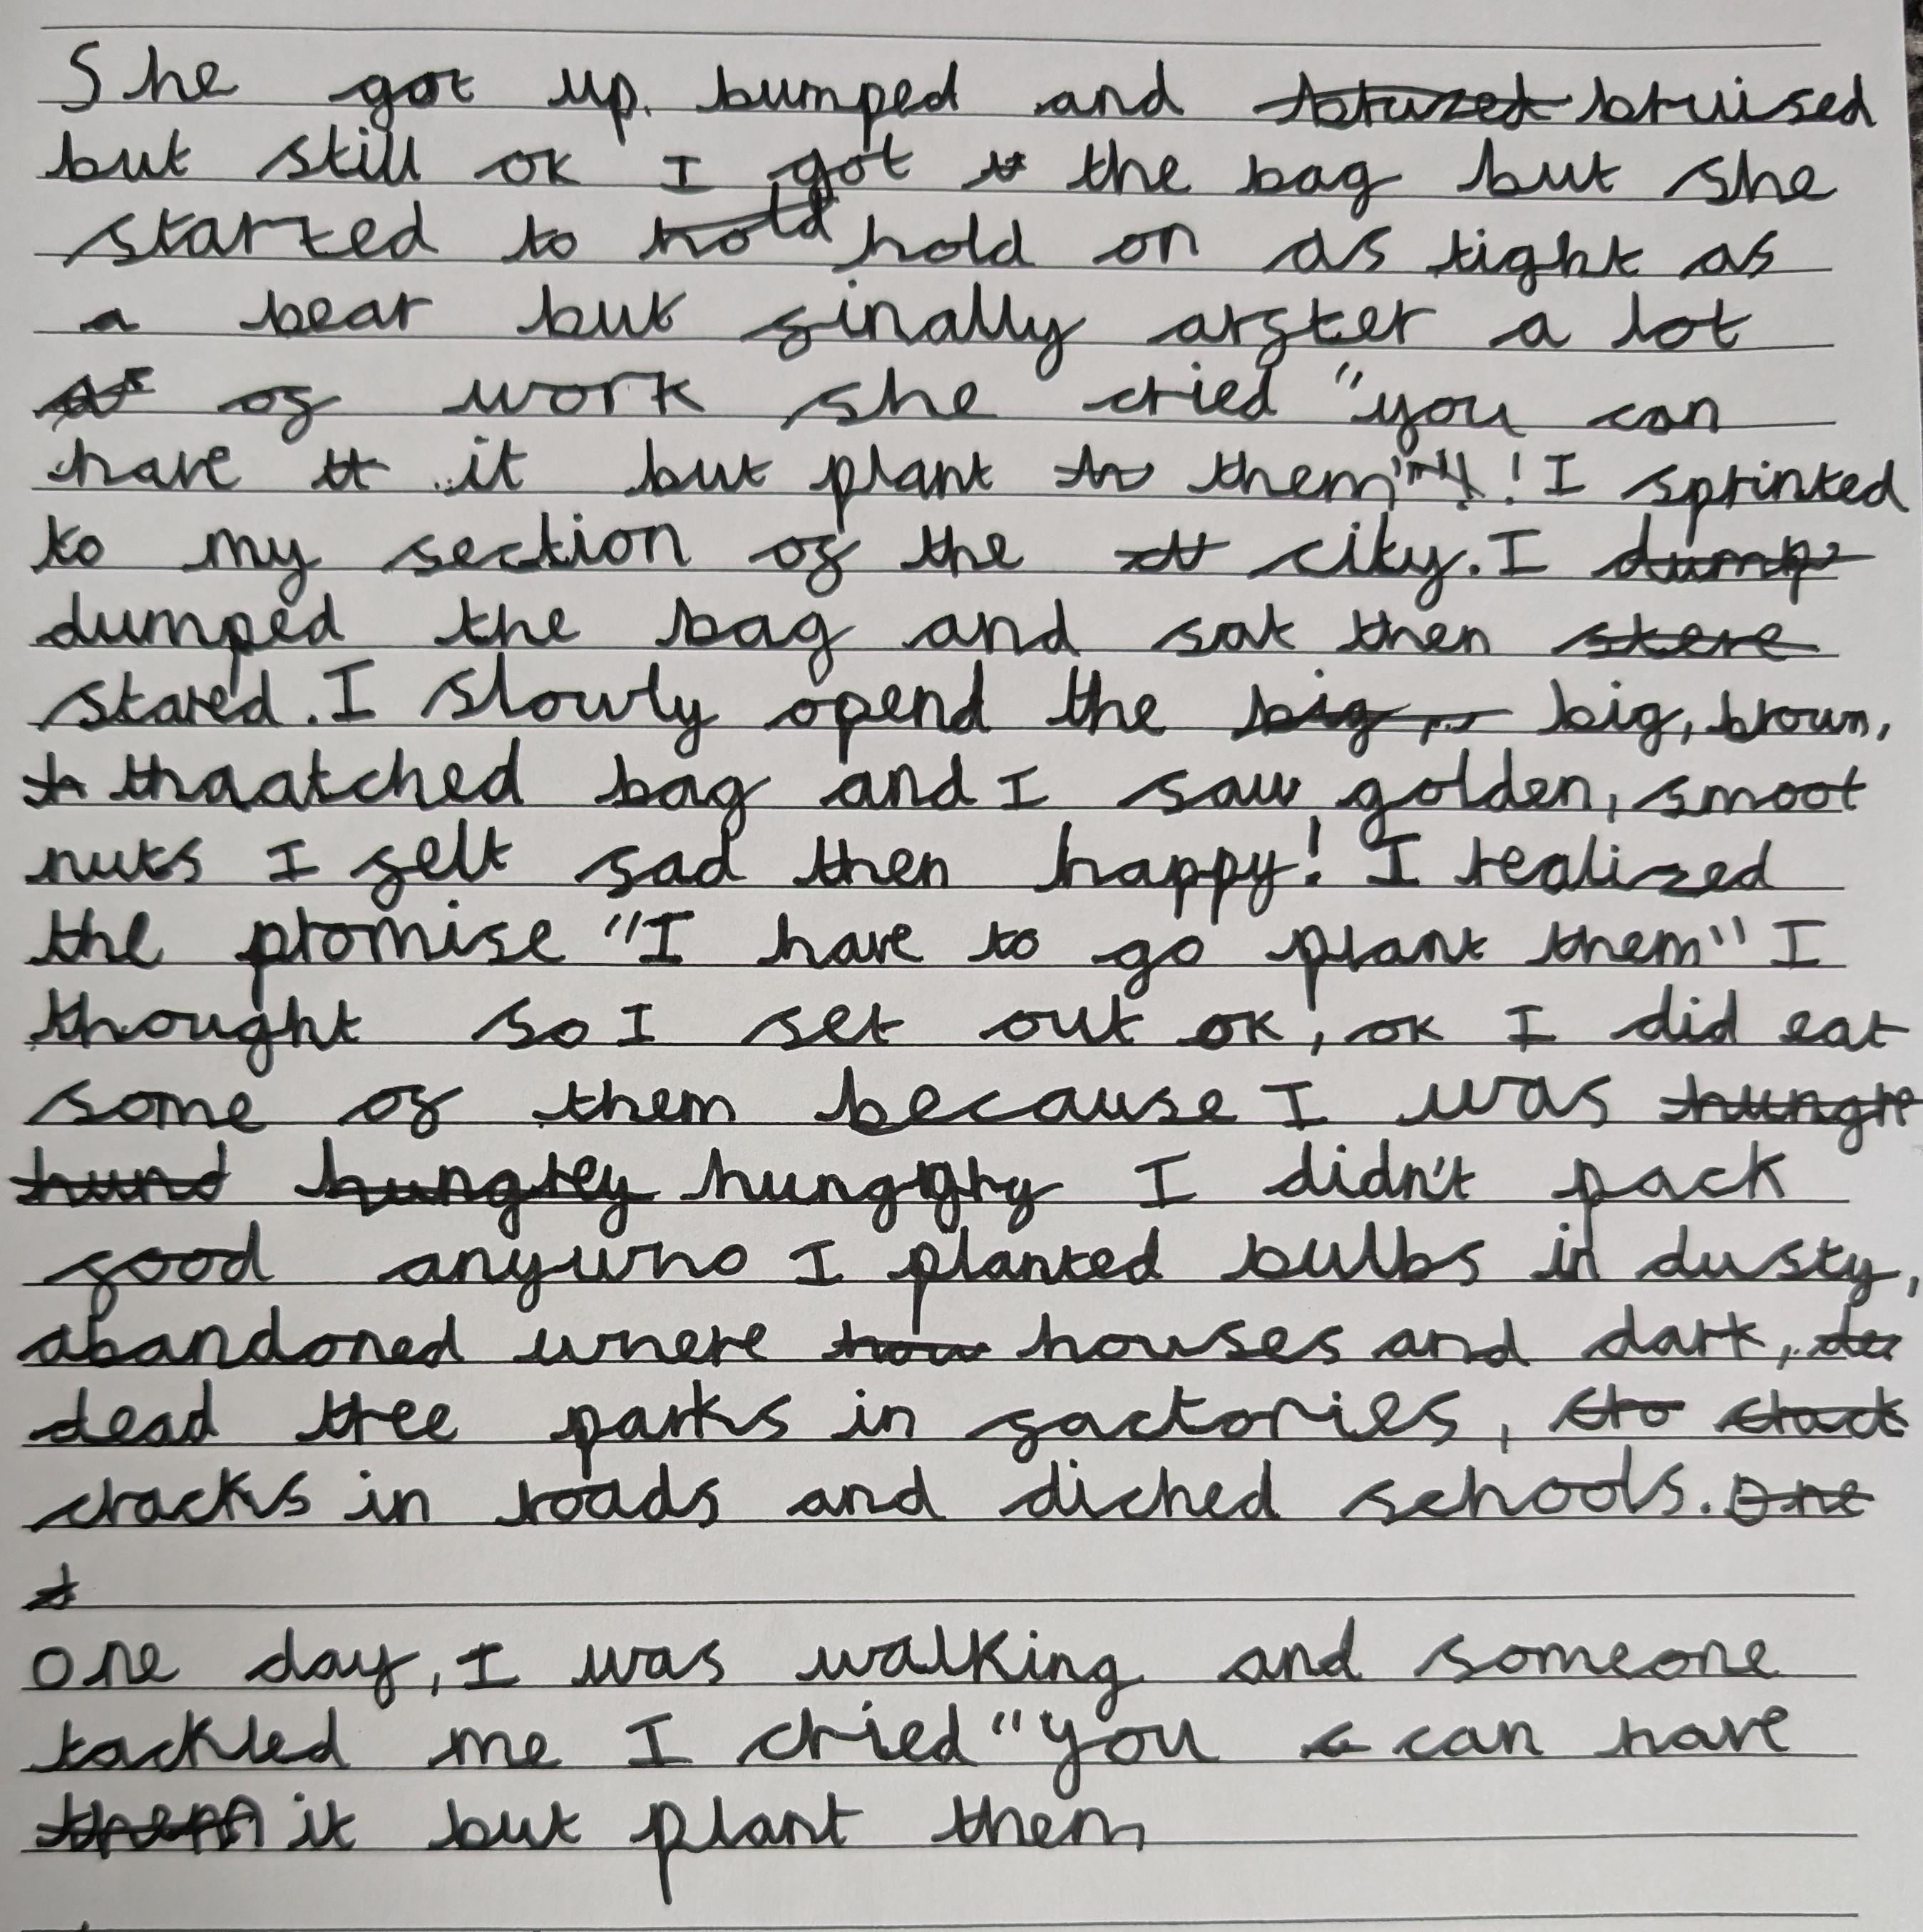 She got up, bumped and bruised
but still ok I got the bag but she
started to hold hold on as tight as
a bear but finally arfter a lot
of work she cried "you can
have it but plant them"! I sprinted
to my section of the city. I dump
dumped the bag and sat then stere
stared. I slowly opend the big, big, brown,
thaatched bag and I saw golden, smoot
nuts I felt sad then happy! I realized
the promise "I have to go plant them" I
thought so I set out ok, ok I did eat
some of them because I was hungre
hund hungrey hunggry I didn't pack
food anywho I planted bulbs in dusty,
abandoned where how houses and dark, de
dead tree parks in factories, cro crack
cracks in roads and diched schools. One
one day, I was walking and someone
tackled me I cried "you c can have
them it but plant them